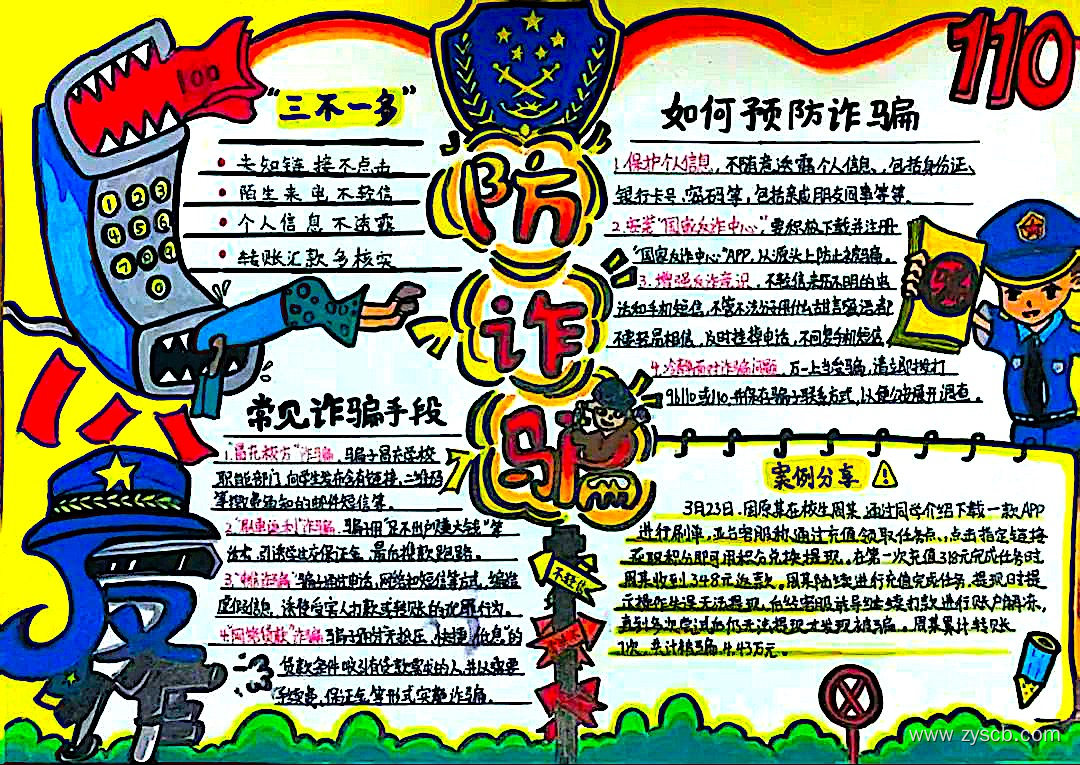 110
100
防诈骗
“三不一多”
未知链接不点击
陌生来电不轻信
个人信息不透露
转账汇款多核实
1 2 3
4 5 6
7 8 9
0
如何预防诈骗
1.保护个人信息，不随意透露个人信息、包括身份证、
银行卡号、密码等，包括亲戚朋友同事等等。
2.安装“国家反诈中心”，要积极下载并注册
“国家反诈中心”APP，从源头上防止被骗。
3.增强反诈意识，不轻信来历不明的电
话和手机短信，不管不法分子用什么甜言蜜语都
不要轻易相信，及时挂掉电话，不回复手机短信
4.冷静面对诈骗问题，万一上当受骗，请立即拨打
96110或110，并保存骗子联系方式，以便公安展开调查。
常见诈骗手段
1.冒充“校方”诈骗，骗子冒充学校
职能部门，向学生发布含有链接，二维码
等缴费通知的邮件短信等。
2.“刷单返利”诈骗，骗子用“足不出户赚大钱”等
3.骗子通过电话，网络和短信等方式，编造
虚假信息，诱使受害人力款或转账的犯罪行为。
4.“网络贷款”诈骗
贷款条件吸引有贷款需求的人，并以需要
手续费，保证金等形式实施诈骗。
不轻信
案例分享
3月23日，因原某在校生周某，通过同学介绍下载一款APP
进行刷单，平台客服称通过充值领取任务点，点击指定链接
获取积分即可用积分兑换提现。在第一次充值318元完成任务时
周某收到348元返款。周某陆续进行充值完成任务，提现时提
示操作失误无法提现，后经客服诱导继续打款进行账户解冻，
直到多次尝试后仍无法提现才发现被骗。周某累计转账
7次，共计被骗4.43万元。
www.zyscb.com